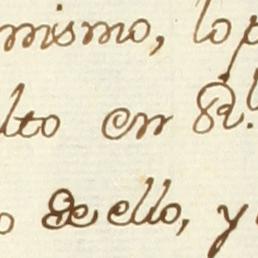 mismo, lo p
lto en R.l
o de ello, y